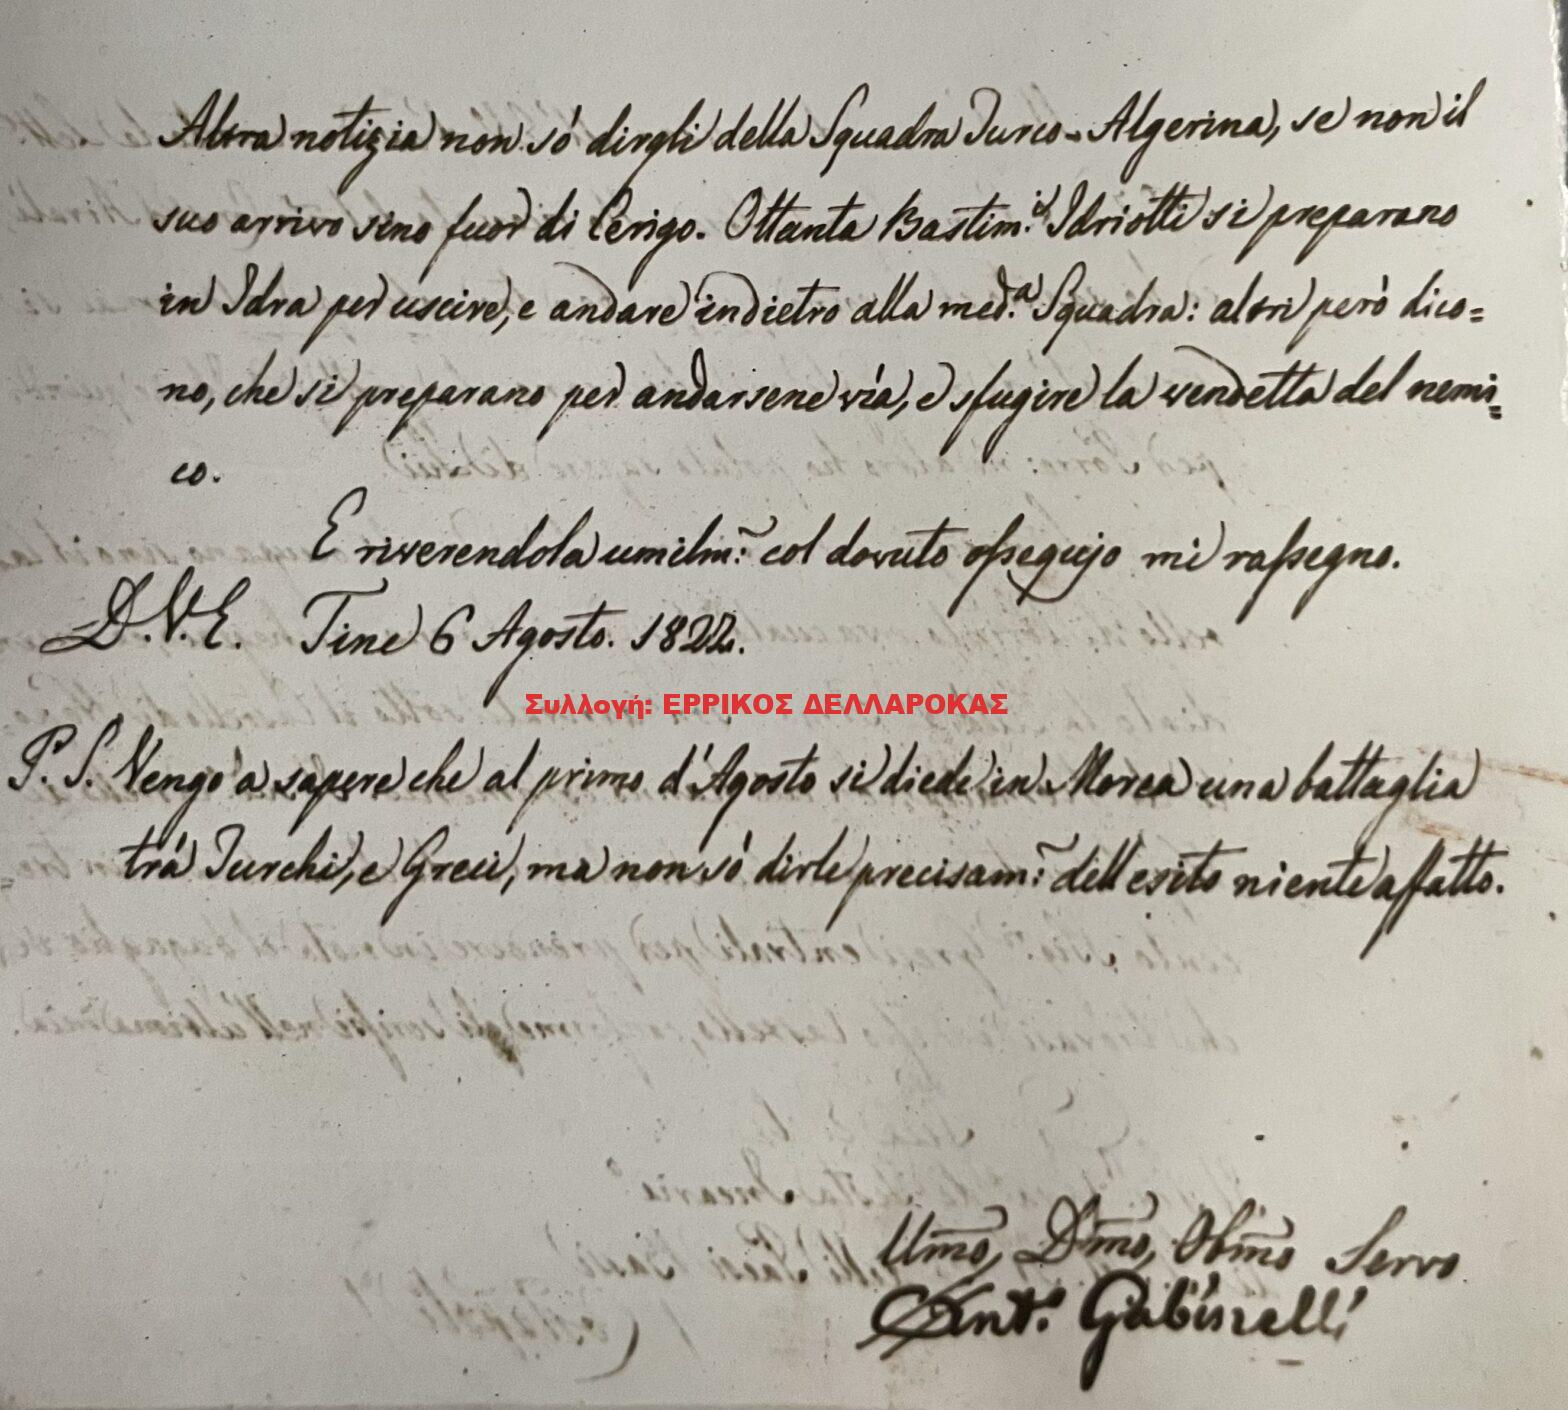 Altra notizia non sò dirgli della Squadra Turco-Algerina, se non il
suo arrivo sino fuor di Cerigo. Ottanta Bastim.ti Idriotti si preparano
in Idra per uscire, e andare indietro alla med.a Squadra: altri però dico=
no, che si preparano per andarsene vía, e sfugire la vendetta del nemi=
co.
E riverendola umilm: col dovuto ossequjo mi rassegno.
D.V.E. Tine 6 Agosto. 1822.
Συλλογή: ΕΡΡΙΚΟΣ ΔΕΛΛΑΡΟΚΑΣ
P.S. Vengo a sapere che al primo d'Agosto si diede in Morea una battaglia
trà Turchi, e Greci, ma non sò dirle precisam: dell esito niente affatto.
Umo, Dmo, Obmo Servo
Ant.o